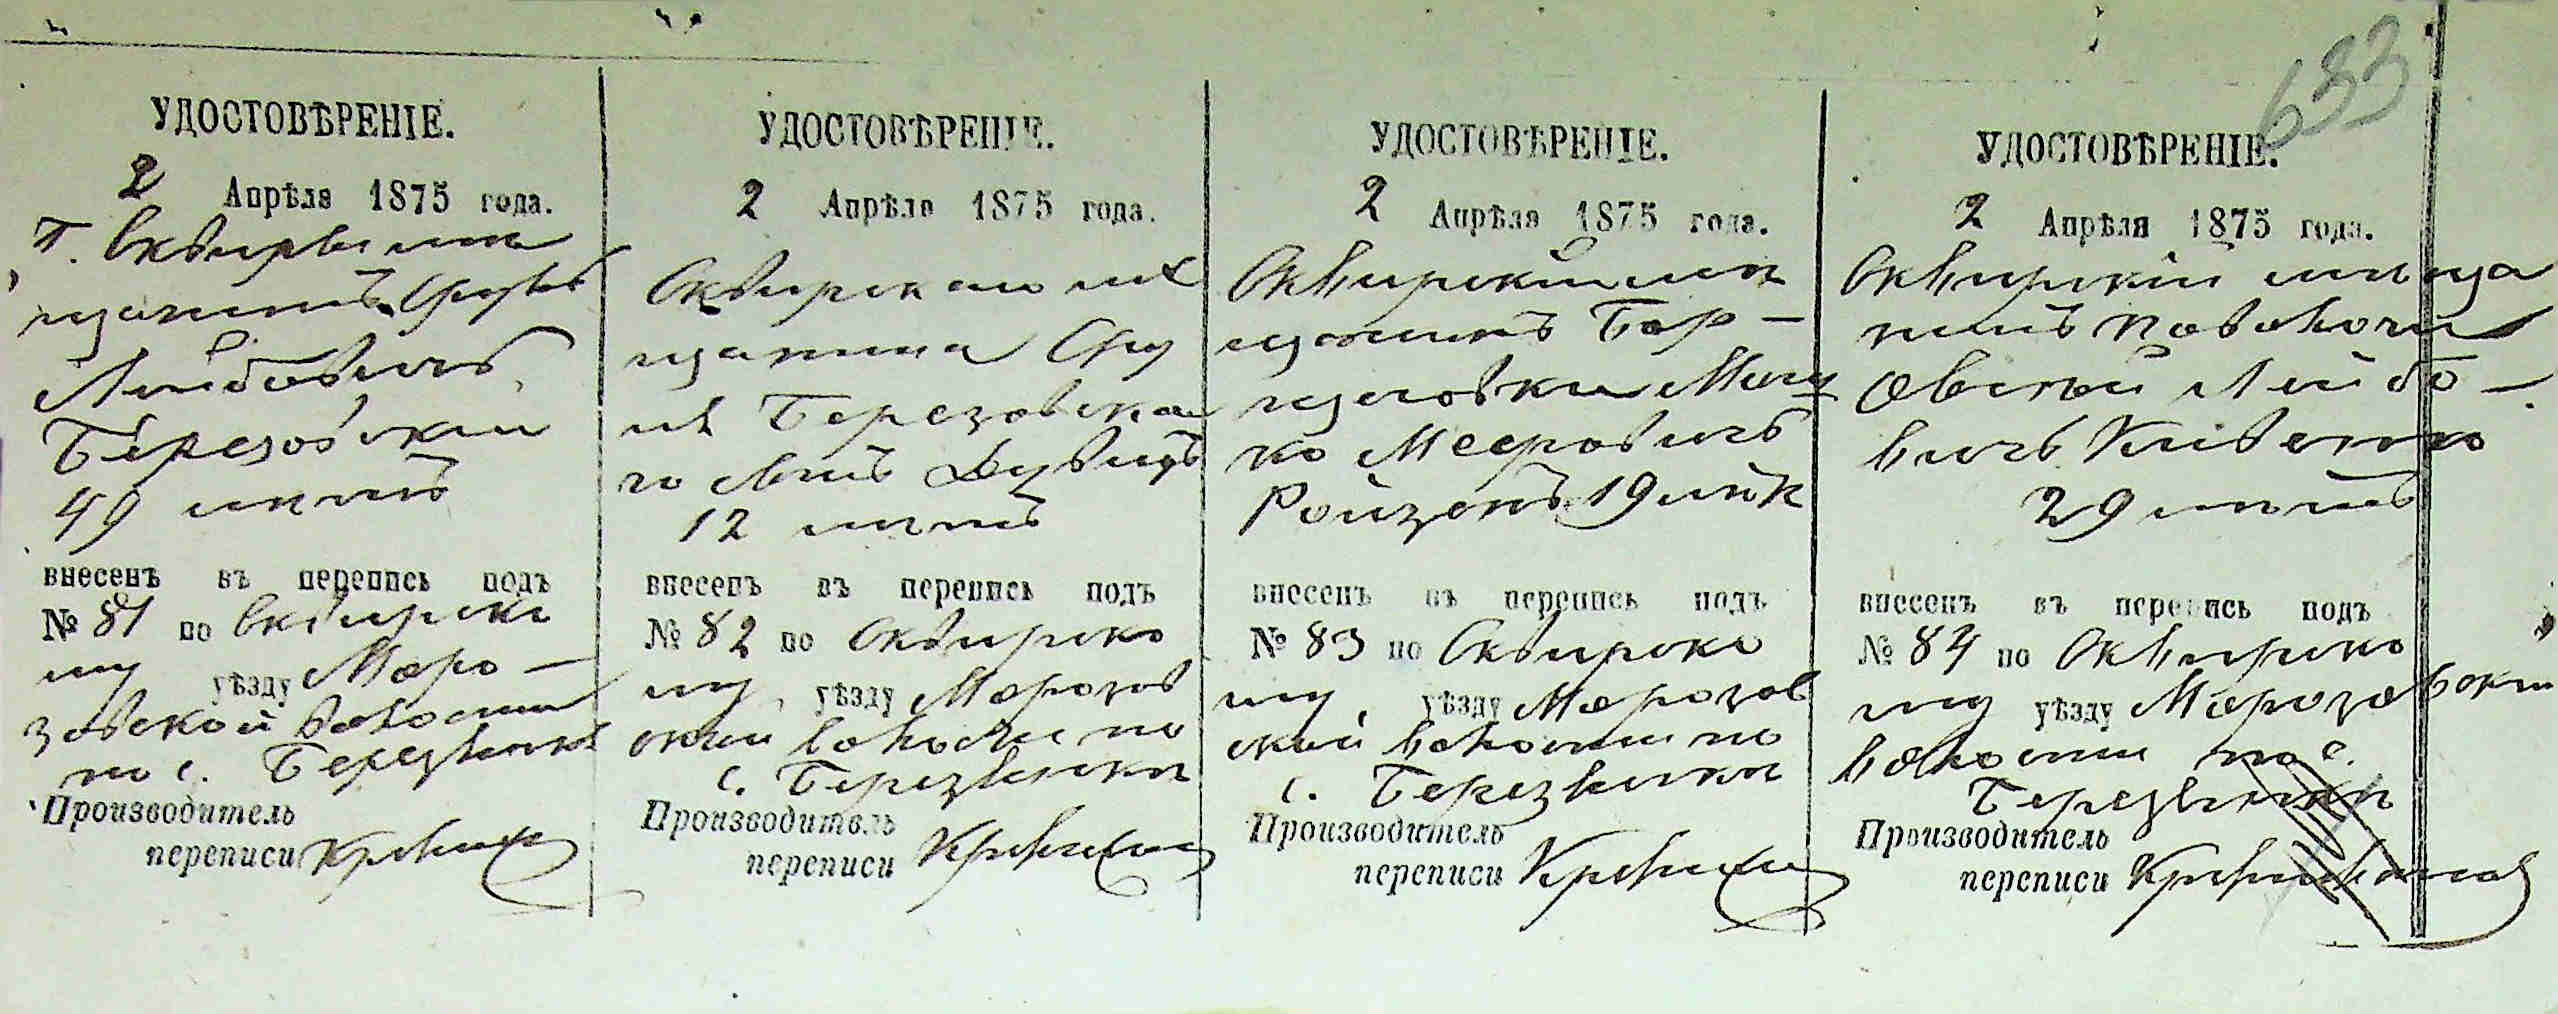 633
УДОСТОВѢРЕНІЕ.
2 Апрѣля 1875 года.
г. Сквиры мѣ
щанинъ Сруль
Лейбовичъ
Березовскій
49 лѣтъ
внесенъ въ перепись подъ
№ 81 по Сквирско
му уѣзду Моро-
зовской волости
по с. Березянкѣ
Производитель
переписи
УДОСТОВѢРЕНІЕ.
2 Апрѣля 1875 года.
Сквирскаго мѣ
щанина Сру
ля Березовска
го сынъ Дувидъ
12 лѣтъ
внесенъ въ перепись подъ
№ 82 по Сквирско
му уѣзду Морозов
ской волости по
с. Березянки
Производитель
переписи
УДОСТОВѢРЕНІЕ.
2 Апрѣля 1875 года.
Сквирскій мѣ
щанинъ Бор-
щаговки Мош
ко Мееровичъ
Ройзенъ 19 лѣтъ
внесенъ въ перепись подъ
№ 83 по Сквирско
му уѣзду Морозов
ской волости по
с. Березянки
Производитель
переписи
УДОСТОВѢРЕНІЕ.
2 Апрѣля 1875 года.
Сквирскій мѣща
нинъ
Овсей Лейбо-
вичъ
29 лѣтъ
внесенъ въ перепись подъ
№ 84 по Сквирско
му уѣзду Морозовской
волости по с.
Березянки
Производитель
переписи